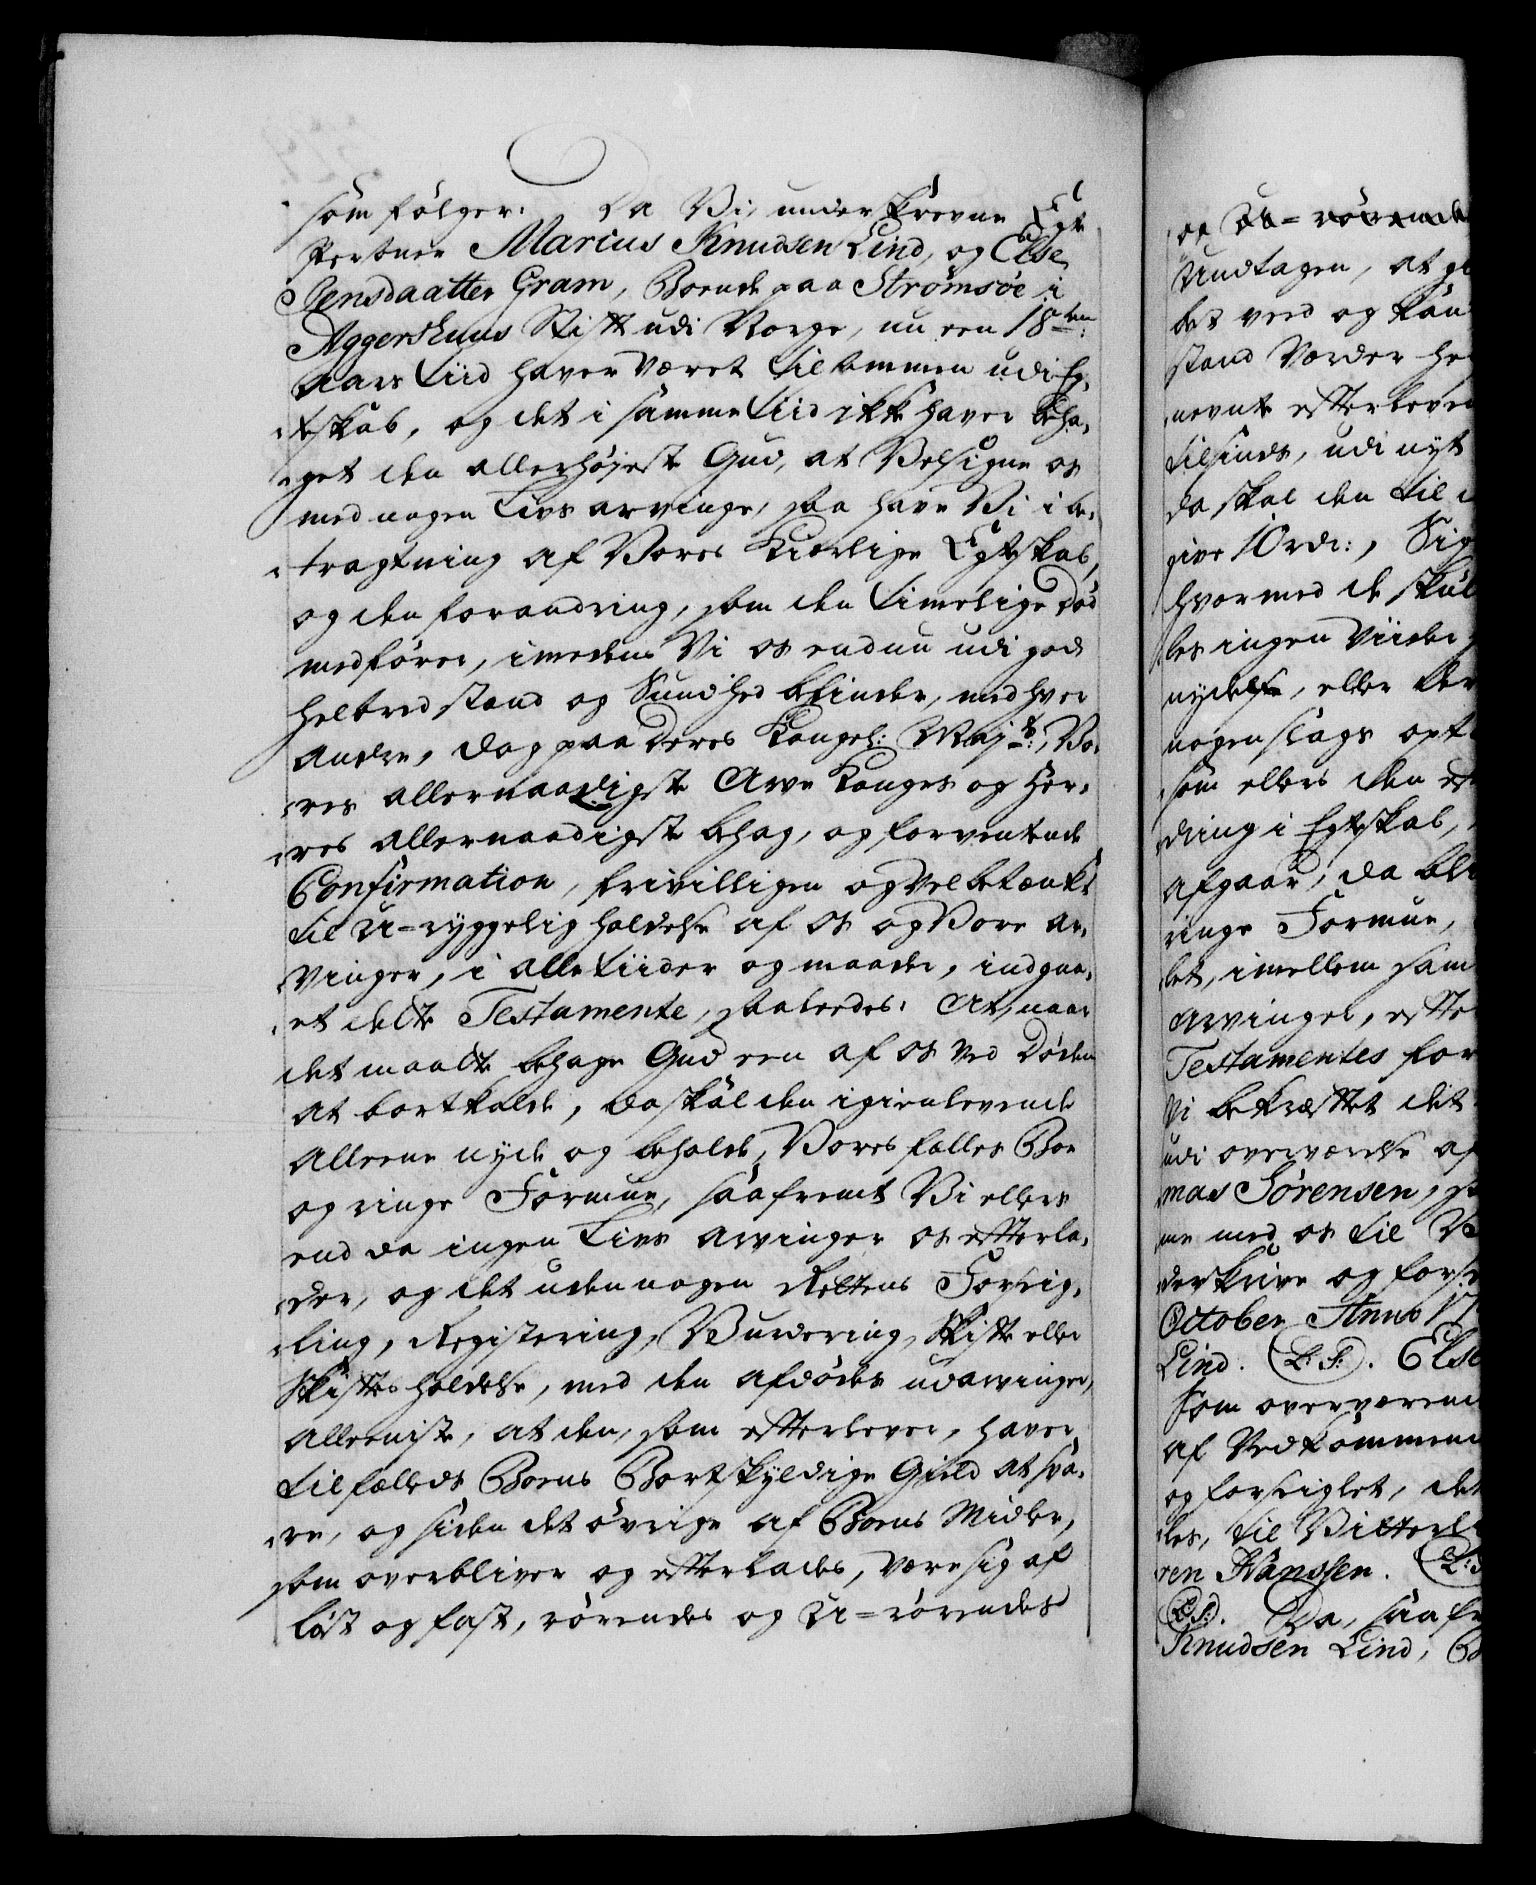 som følger. Da Vi, underskrevne Egte
Personer Marius Knudsen Lind, og Else
Jensdaatter Gram, Boende paa Strømsøe i
Aggershuus Stift udi Norge, nu een 18ten
aars Tiid haver været tilsammen udi Eg-
teskab, og det i samme Tiid ikke haver beha-
get den allerhøyeste Gud, at Velsigne os
med nogen Livs arvinge, saa have Vi i be-
tragtning af Vores Kierlige Egteskab,
og den forandring, som den timelige Død
medfører, imedens Vi os endnu udi god
helbred stand og Sundhed befinder, med hver
andre, dog paa Deres Kongel: Mayts: Vo-
res allernaadigste Arve Konges og Her-
res allernaadigste behag, og forventende
Confirmation, frivilligen og Velbetænkt
til U-ryggelig holdelse af os og Vore ar-
vinger, i alle Tiider og maader, indgaa-
et dette Testamente, saaledes: At, naar
det maatte behage Gud een af os ved Døden
at bortkalde, da skal den igienlevende
alleene nyde og beholde, Vores fælles Boe
og ringe Formue, saafremt Vi ellers
end da ingen Livs arvinger os efterla-
der, og det uden nogen Rettens Forseig-
ling, Registering, Vurdering, Skifte eller
Skiftes holdelse, med den afdødes udarvinger,
alleeniste, at den, som efterlever, haver
til fælleds Boens Bortskyldige Gield at sva-
re, og siden det øvrige af Boens Midler,
som overbliver og efterlades, være sig af
løst og fast, rørendes og U-rørendes
Undtagen, at
bes ved og
stand Værder
nevnte efterleve
tilsinds, udi nyt
da skal den til
give 10 rdr:,
hvormed de
les ingen Viider
nydelse, eller
nogenslags
som ellers den
dring i Egteskab,
afgaar, da
ringe Formue,
let, imellem sam
arvinger, efter
Testamentes for
Vi bekræftet det
udi overværelse af
mas Sørensen,
me med os til
derskrive og forse
October Anno 17
Lind. (L: S:). Else
Som overværende
af Vedkommen
og forseiglet, det
les, til Vitterl
ren Hanssen. (L: S
(L: S:). Da, saafr
Knudsen Lind, B